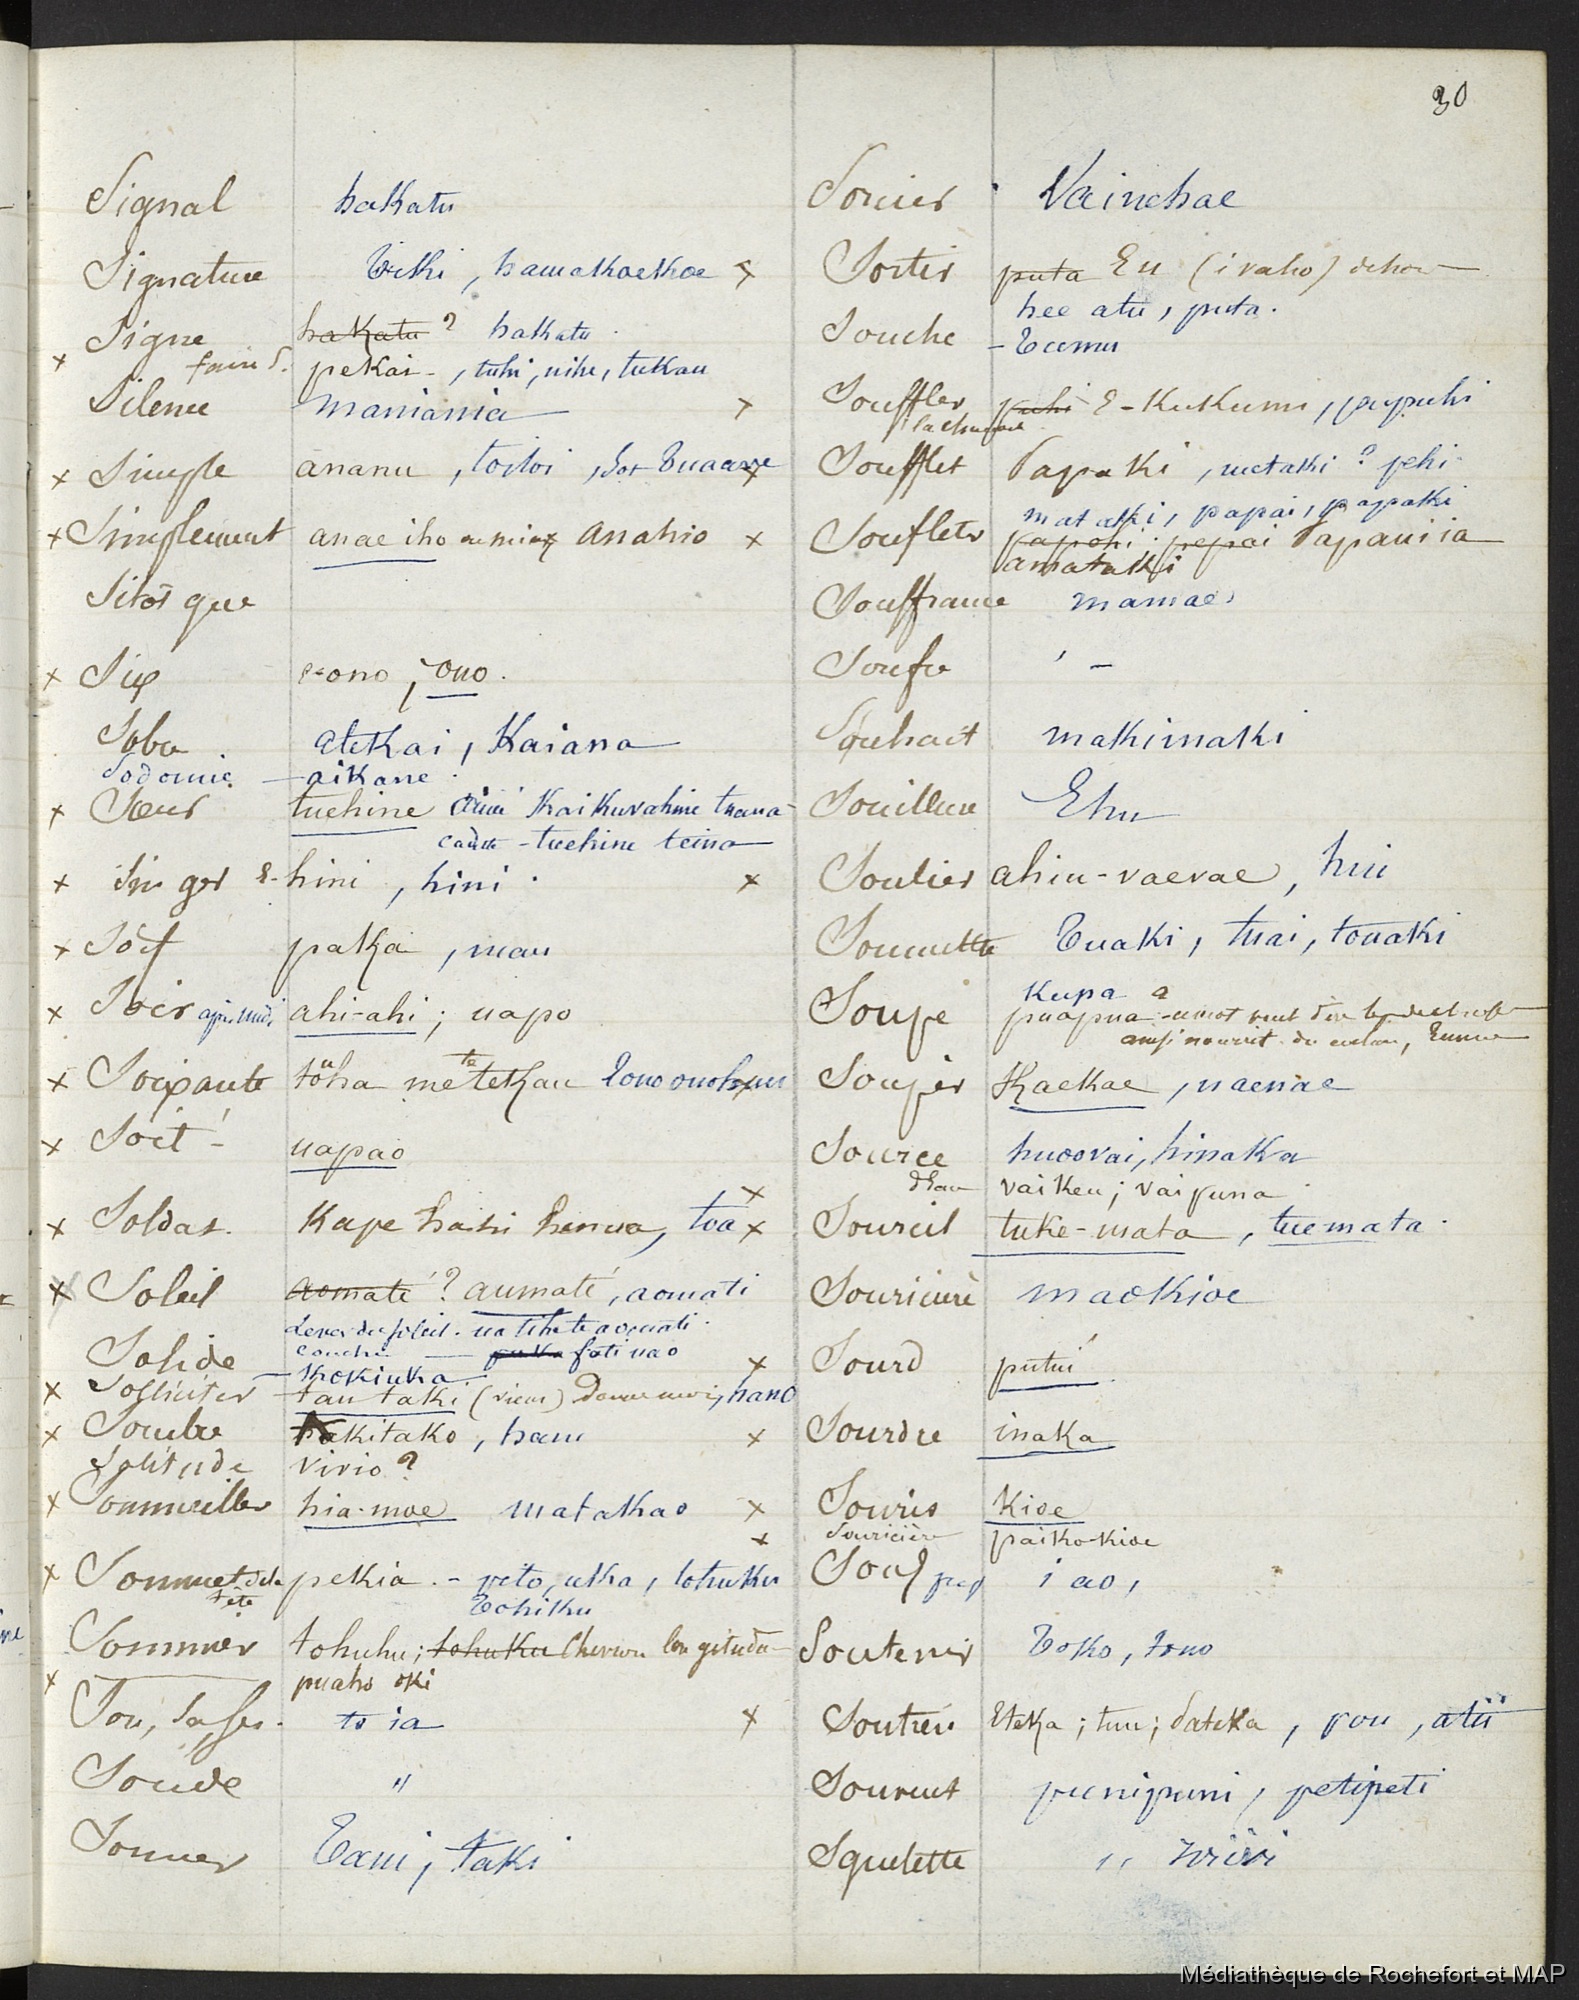 30
Signal hakatu
Signature Tiki, hamakaekae
Signe hakatu ? hakatu
faire S. pekai -, tuhi, nihe, tukau
Silence maniania
Simple ananu, toitoi, Sot
Simplement anae iho anahio
Sitôt que
Six e-ono, ono.
Sobre atekai, Kaiana
Sodomie - aikane
Sœur tuehine Kaikuvahine tuana
cadette - tuehine teina
Singer E-hini, hini.
Soif paka, mau
Soir après midi ahi-ahi; uapo
Soixante toha me te tekau
Soit uapao
Soldat. Kape hahi henua, toa
Soleil aomate ? aumaté, aomati
Lever du soleil. ua tihe te aoumati.
couché — puka fati uao
Solide - Kokiuka
Solliciter - tau taki (viens) Donne moi, nano
Sombre hakitako, hanu
Solitude virio ?
Sommeiller hia-moe matakao
Sommet de la tête pekia. - veto, uka, tohuku
Tohiku
Sommer tohuhu; tohuku
puaho oki
Son, Sa, Ses. to ia
Sonde "
Sonner Tani, taki
Sorcier Vainehae
Sortir puta Eu (i vaho) dehors
hee atu, puta.
Souche - Tumu
Souffler puhi E-Kukumi, pupuhi
la chandelle
Soufflet Papaki, metaki ? pehi
mataki, papai, papaki
Souffleter papehi. pepai Papaui ia
amataki
Souffrance mamae
Soufre ' -
Souhait makimaki
Souillure Ehu
Soulier ahiu-vaevae, hui
Soumettre Tuaki, tuai, touaki
Soupe Kupa ?
puapua
Souper Kaekae, naenae
Source huoovai, hinaka
d'Eau vaikeu; vaipuna
Sourcil tuke-mata, tuemata.
Souricière maokioe
Sourd putui
Sourdre inaka
Souris Kioe
Souricière paiko-kioe
Sous prep i ao,
Soutenir Toko, tono
Soutien Eteka; tuu; pateka, pou, atii
Souvent punipuni, petipeti
Squelette " ivivi
Médiathèque de Rochefort et MAP